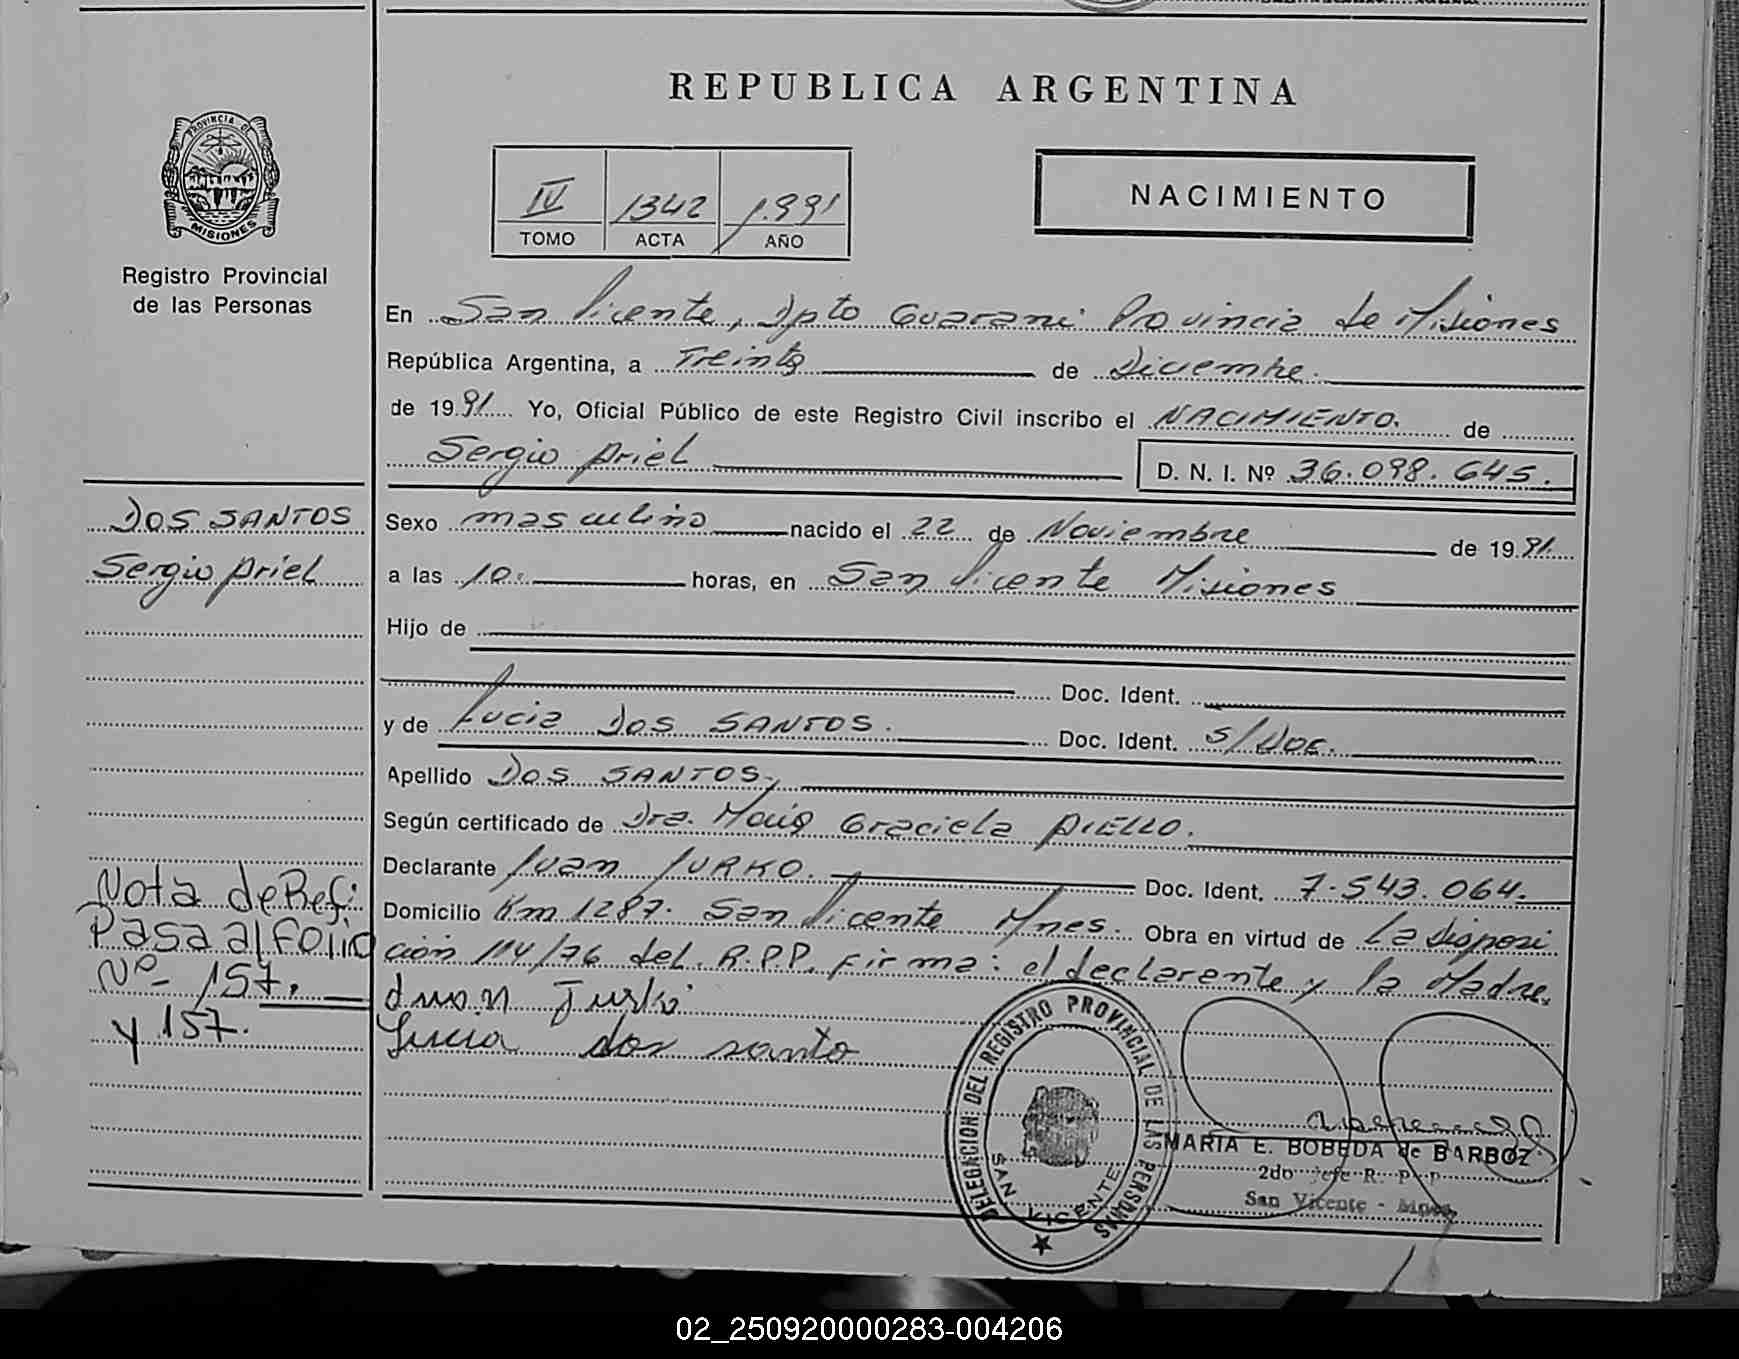 REPUBLICA ARGENTINA
PROVINCIA DE MISIONES
Registro Provincial
de las Personas
IV 1342 1.991
TOMO ACTA AÑO
NACIMIENTO
En San Vicente, Dpto Guarani Provincia de Misiones
República Argentina, a Treinta de Diciembre.
de 1991 Yo, Oficial Público de este Registro Civil inscribo el NACIMIENTO. de
Sergio Ariel D. N. I. Nº 36.098.645.
DOS SANTOS
Sergio Ariel
Sexo masculino nacido el 22 de Noviembre de 1991
a las 10. horas, en San Vicente Misiones
Hijo de
Doc. Ident.
y de Lucia DOS SANTOS. Doc. Ident. S/Doc.
Apellido DOS SANTOS,
Según certificado de Dra. Graciela AIELLO.
Declarante Juan JURKO. Doc. Ident. 7.543.064.
Domicilio Km 1287. San Vicente Mnes. Obra en virtud de La disposi
ción 114/76 del. R.P.P. Firma: el declarante y la Madre.
Juan
Lucia dos santo
Nota de Ref:
Pasa al Folio
Nº- 157.
y 157.
DELEGACION DEL REGISTRO PROVINCIAL DE LAS PERSONAS
SAN VICENTE
MARIA E. BOBEDA de BARBOZ
2do Jefe R. P. P.
San Vicente - Mnes.
02_250920000283-004206